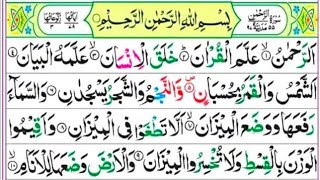 بِسْمِ اللهِ الرَّحْمٰنِ الرَّحِيْمِ
اَلرَّحْمٰنُ ۙ عَلَّمَ الْقُرْاٰنَ ؕ خَلَقَ الْاِنْسَانَ ۙ عَلَّمَهُ الْبَيَانَ
اَلشَّمْسُ وَالْقَمَرُ بِحُسْبَانٍ وَّالنَّجْمُ وَالشَّجَرُ يَسْجُدٰنِ وَالسَّمَآءَ
رَفَعَهَا وَوَضَعَ الْمِيْزَانَ ۙ اَلَّا تَطْغَوْا فِى الْمِيْزَانِ وَاَقِيْمُوا
الْوَزْنَ بِالْقِسْطِ وَلَا تُخْسِرُوا الْمِيْزَانَ وَالْاَرْضَ وَضَعَهَا لِلْاَنَامِ